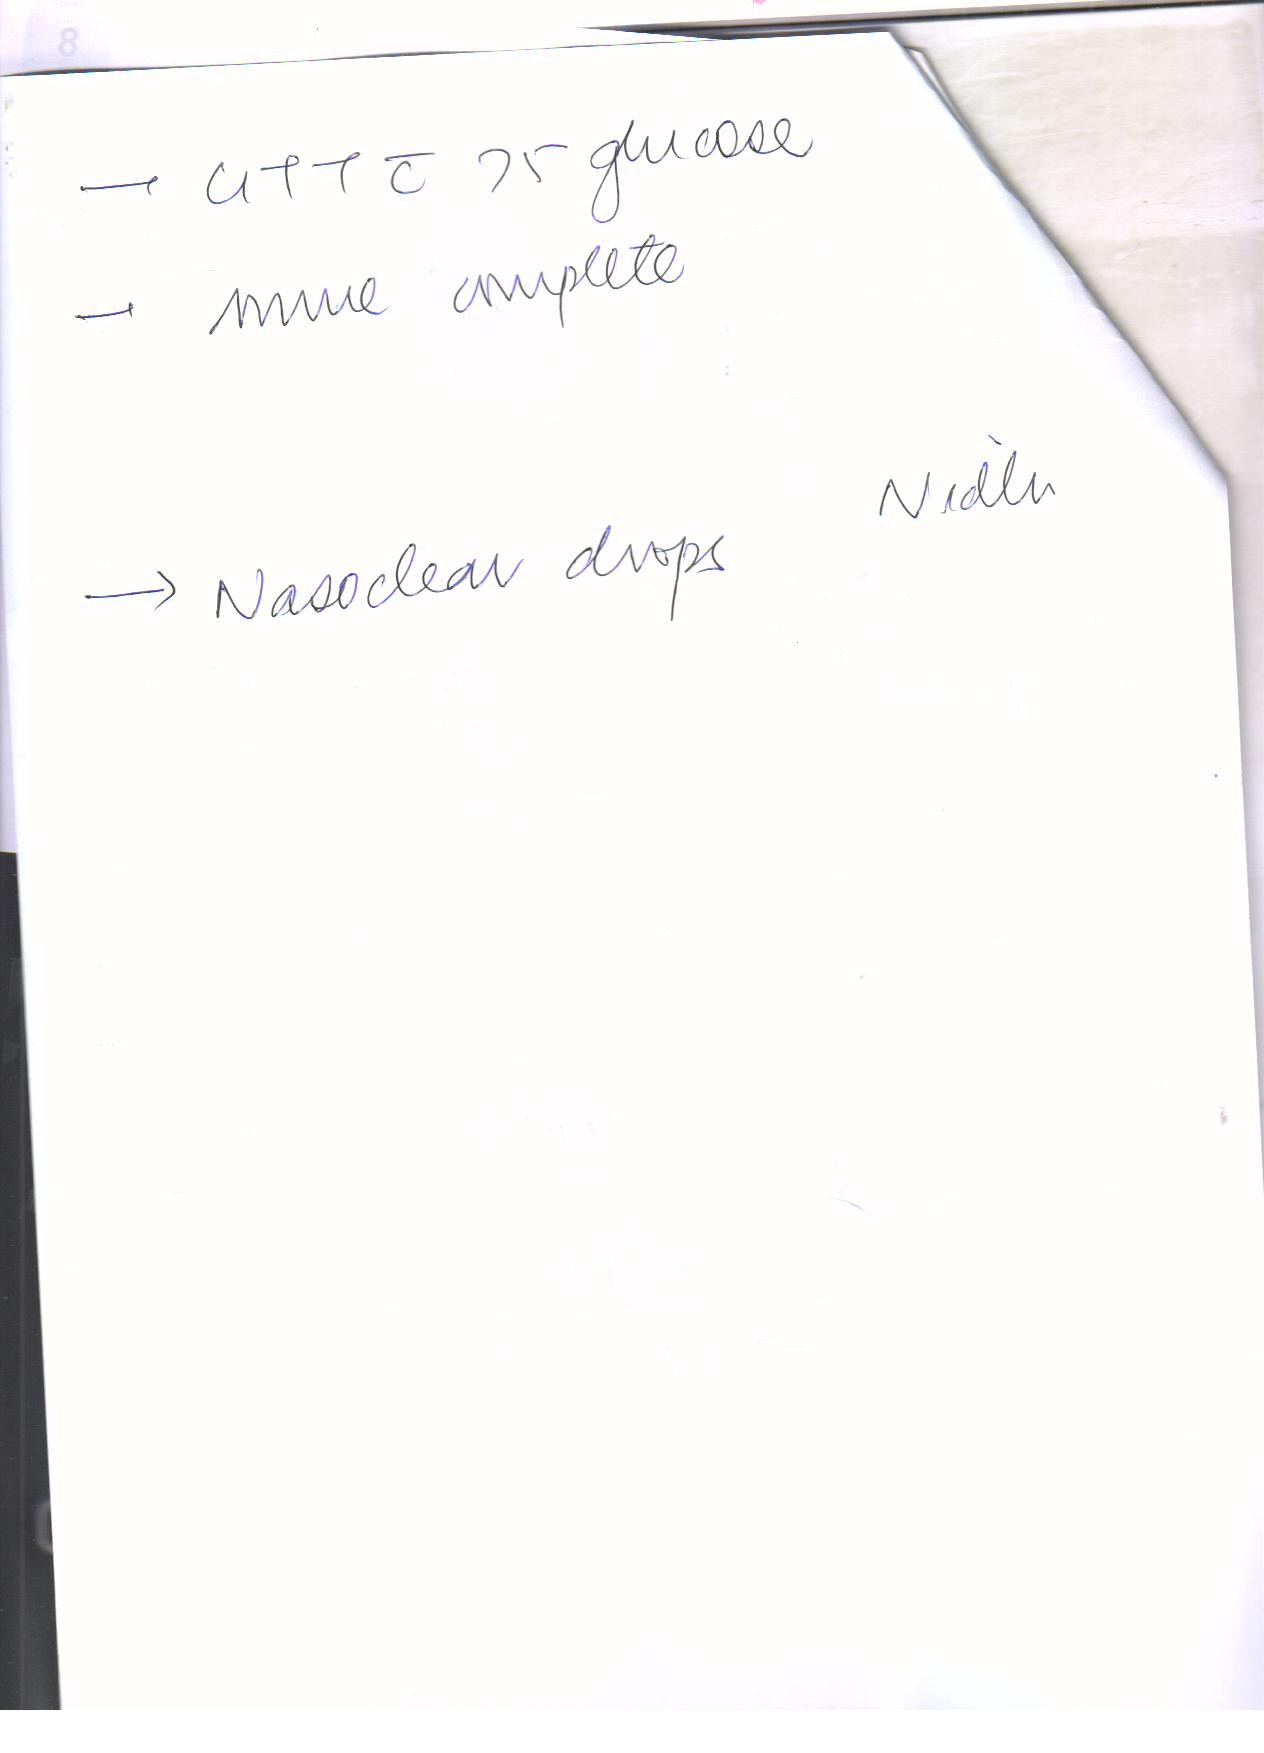 → GTT c̄ 75 glucose
→ urine complete
Nidhi
→ Nasoclear drops